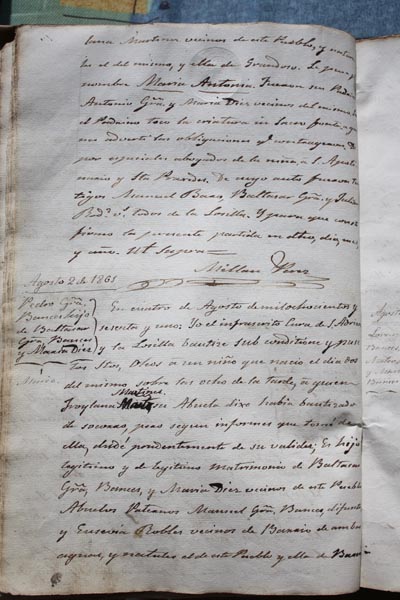 tana Martinez vecinos de este Pueblo, y natu
ral el del mismo, y ella de Grandoso. Le puse p
nombre Maria Antonia. Fueron sus Padri
Antonio Grã. y Maria Diez vecinos del mismo
el Padrino toco la criatura en Sacro fuente a q
nes adverti las obligaciones y
por especiales abogados de la niña a S. Apoli
nario y Sta. Praxedes. De cuyo acto fueron tes
tigos Manuel Baro, Baltasar Grã. y Julian
todos de la Losilla. Y para que cons
firmo la presente partida en dicho, dia, mes
y año. Ut Supra
Millan
Agosto 2 de 1861
Pedro Grã.
Bances hijo
de Baltasar
Grã. Bances
y Maria Diez
En cuatro de Agosto de mil ochocientos y
sesenta y uno: Yo el infrascrito Cura de S. Adria
y la Losilla bautice sub conditione y puse
Stos. Oleos a un niño que nacio el dia dos
del mismo sobre las ocho de la tarde, a quien
Martinez
Froylana su Abuela dixo habia bautizado
de socorro, pero segun informes que tomé de
ella, dudé prudentemente de su validez; Es hijo
legitimo y de legitimo matrimonio de Baltasar
Grã. Bances, y Maria Diez vecinos de este Pueblo
Abuelos Paternos Manuel Grã. Bances, difunto
y Eusevia Robles vecinos de Barrio de ambas
aguas, y naturales el de este Pueblo y ella de Barrio